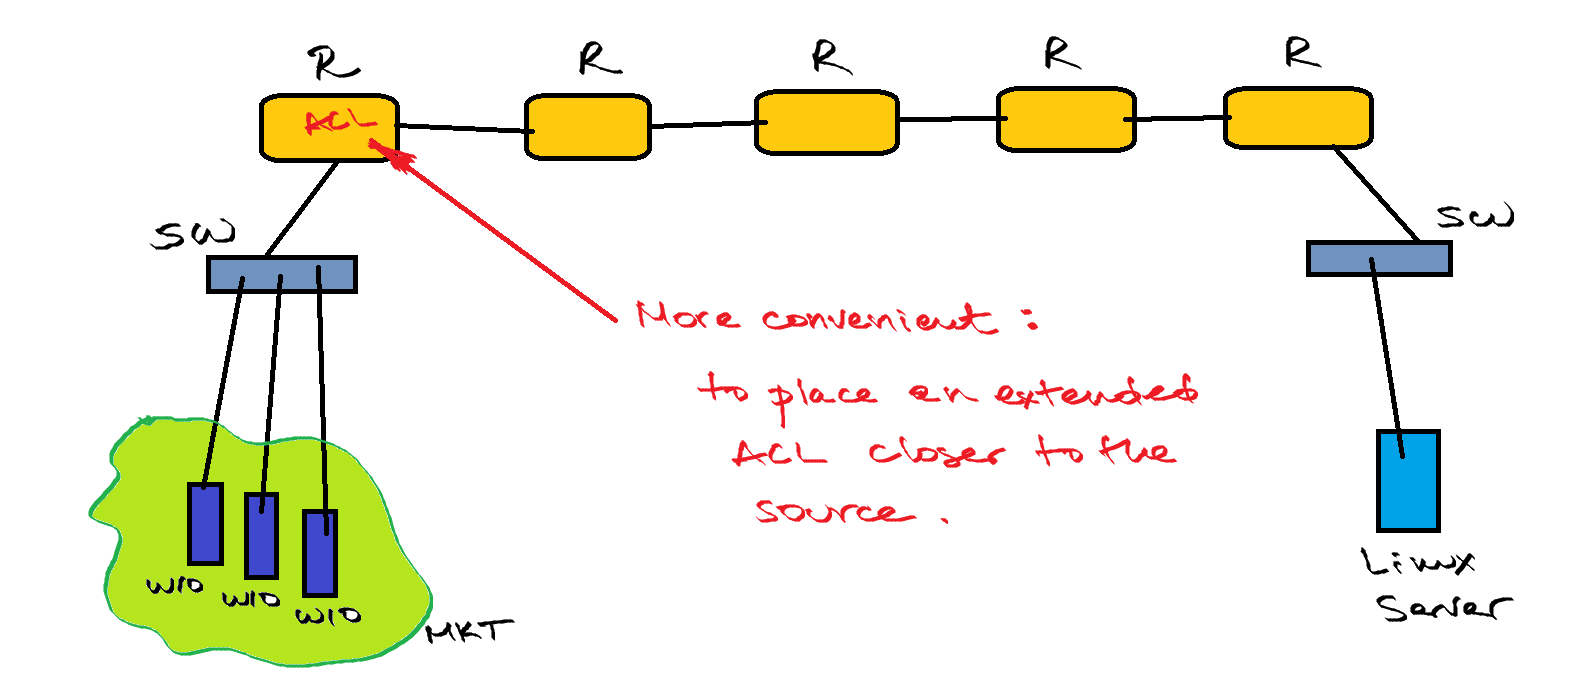 R
R
R
R
R
ACL
SW
SW
More convenient :
to place an extended
ACL closer to the
source .
W10
W10
W10
MKT
Linux
Server